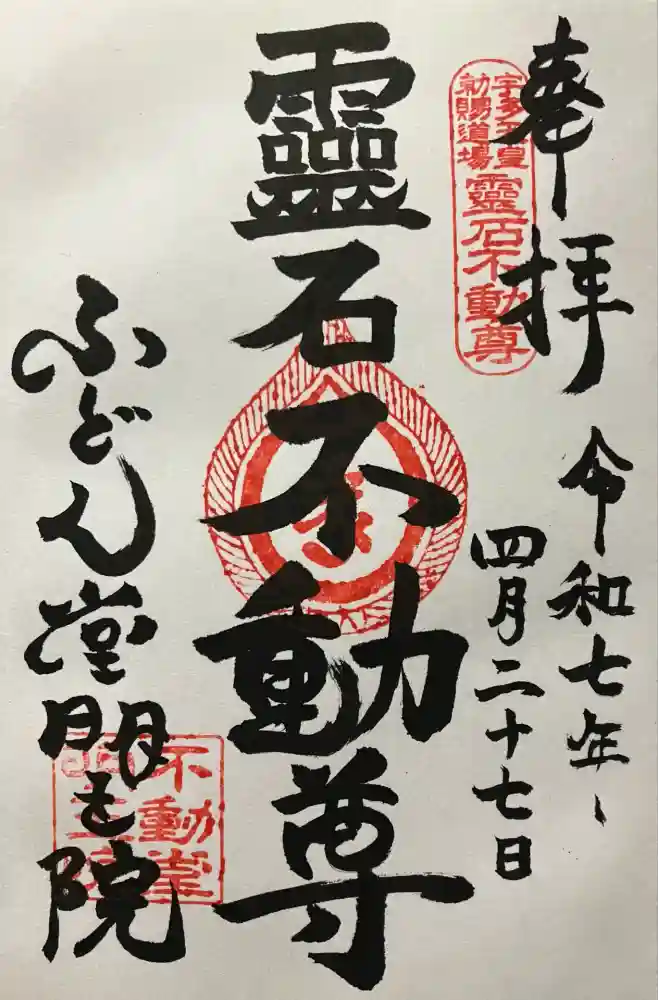 奉拝
宇多天皇
勅賜道場
靈石不動尊
令和七年
四月二十七日
靈石不動尊
ふどん堂明王院
不動堂
明王院